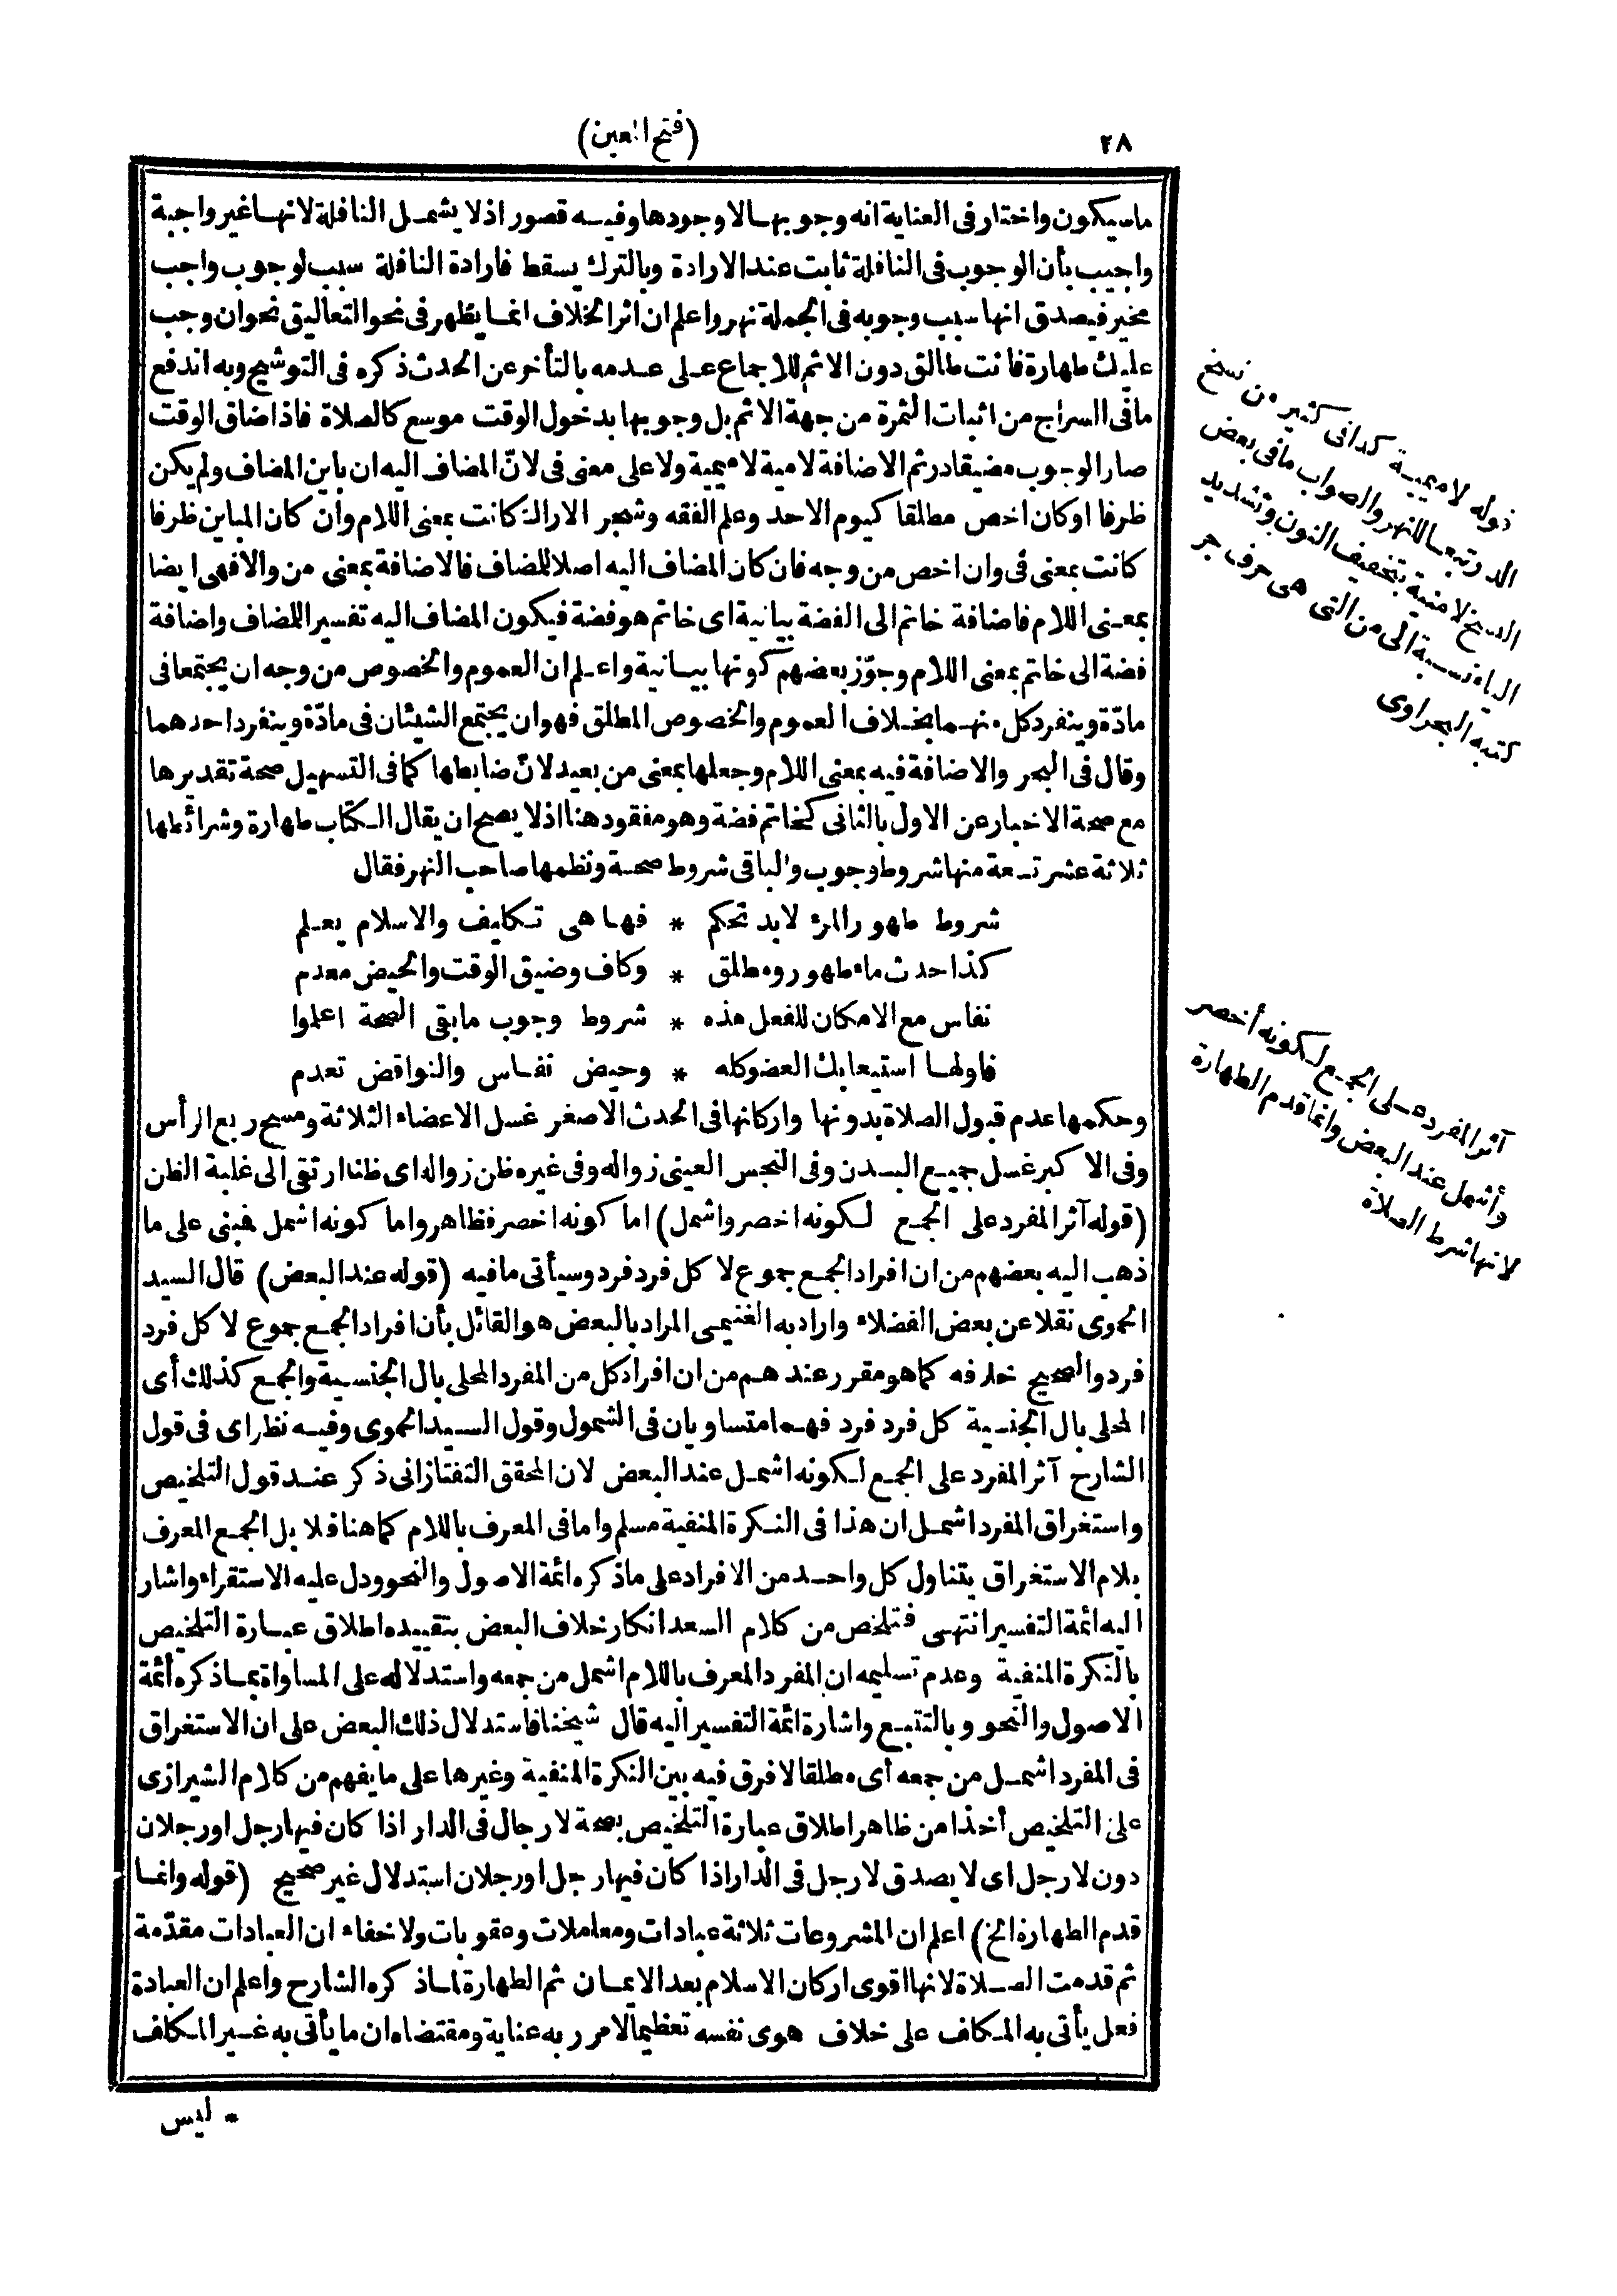 ٢٨
(فتح المعين)
ماسيكون واختار فى العناية انه وجوبها لا وجودها وفيه قصور اذلا يشمل النافلة لانها غير واجبة
واجيب بأن الوجوب فى النافلة ثابت عند الارادة وبالترك يسقط فارادة النافلة سبب لوجوب واجب
مخير فيصدق انها سبب وجوبه فى الجملة نهر واعلم ان اثر الخلاف انما يظهر فى نحو التعاليق نحو ان وجب
عليك طهارة فانت طالق دون الاثم للاجماع على عدمه بالتأخر عن الحدث ذكره فى التوشيح وبه اندفع
مافى السراج من اثبات الثمرة من جهة الاثم بل وجوبها بدخول الوقت موسع كالصلاة فاذا ضاق الوقت
صار الوجوب مضيقا در ثم الاضافة لامية لا ميمية ولا على معنى فى لانّ المضاف اليه ان باين المضاف ولم يكن
ظرفا او كان اخص مطلقا كيوم الاحد وعلم الفقه وشجر الاراك كانت بمعنى اللام وان كان المباين ظرفا
كانت بمعنى فى وان اخص من وجه فان كان المضاف اليه اصلا للمضاف فالاضافة بمعنى من والا فهى ايضا
بمعنى اللام فاضافة خاتم الى الفضة بيانية اى خاتم هو فضة فيكون المضاف اليه تفسيرا للمضاف واضافة
فضة الى خاتم بمعنى اللام وجوّز بعضهم كونها بيانية واعلم ان العموم والخصوص من وجه ان يجتمعا فى
مادّة وينفرد كل منهما بخلاف العموم والخصوص المطلق فهو ان يجتمع الشيئان فى مادّة وينفرد احدهما
وقال فى البحر والاضافة فيه بمعنى اللام وجعلها بمعنى من بعيد لانّ ضابطها كما فى التسهيل صحة تقديرها
مع صحة الاخبار عن الاول بالثانى كخاتم فضة وهو مفقود هنا اذلا يصح ان يقال الكتاب طهارة وشرائطها
ثلاثة عشر تسعة منها شروط وجوب والباقى شروط صحة ونظمها صاحب النهر فقال
شروط طهور المرء لابد تحكم * فها هى تكليف والاسلام يعلم
كذا حدث ماء طهور ومطلق * وكاف وضيق الوقت والحيض معدم
نفاس مع الامكان للفعل هذه * شروط وجوب ما بقى الصحة اعلموا
فاولها استيعابك العضو كله * وحيض نفاس والنواقض تعدم
وحكمها عدم قبول الصلاة بدونها واركانها فى الحدث الاصغر غسل الاعضاء الثلاثة ومسح ربع الرأس
وفى الاكبر غسل جميع البدن وفى النجس العينى زواله وفى غيره ظن زواله اى ظنا ارتقى الى غلبة الظن
(قوله آثر المفرد على الجمع لكونه اخصر واشمل) اما كونه اخصر فظاهر واما كونه اشمل فمبنى على ما
ذهب اليه بعضهم من ان افراد الجمع جموع لا كل فرد فرد وسيأتى مافيه (قوله عند البعض) قال السيد
الحموى نقلا عن بعض الفضلاء واراد به الغنيمى المراد بالبعض هو القائل بأن افراد الجمع جموع لا كل فرد
فرد والصحيح خلافه كما هو مقرر عندهم من ان افراد كل من المفرد المحلى بال الجنسية والجمع كذلك أى
المحلى بال الجنسية كل فرد فرد فهما متساويان فى الشمول وقول السيد الحموى وفيه نظر اى فى قول
الشارح آثر المفرد على الجمع لكونه اشمل عند البعض لان المحقق التفتازانى ذكر عند قول التلخيص
واستغراق المفرد اشمل ان هذا فى النكرة المنفية مسلم واما فى المعرف باللام كما هنا فلا بل الجمع المعرف
بلام الاستغراق يتناول كل واحد من الافراد على ما ذكره ائمة الاصول والنحو ودل عليه الاستقراء واشار
اليه ائمة التفسير انتهى فتلخص من كلام السعد انكار خلاف البعض بتقييده اطلاق عبارة التلخيص
بالنكرة المنفية وعدم تسليمه ان المفرد المعرف باللام اشمل من جمعه واستدلاله على المساواة بما ذكره أئمة
الاصول والنحو وبالتتبع واشارة ائمة التفسير اليه قال شيخنا فاستدلال ذلك البعض على ان الاستغراق
فى المفرد اشمل من جمعه أى مطلقا لا فرق فيه بين النكرة المنفية وغيرها على ما يفهم من كلام الشيرازى
على التلخيص أخذا من ظاهر اطلاق عبارة التلخيص بصحة لا رجال فى الدار اذا كان فيها رجل او رجلان
دون لا رجل اى لا يصدق لا رجل فى الدار اذا كان فيها رجل او رجلان استدلال غير صحيح (قوله وانما
قدم الطهارة الخ) اعلم ان المشروعات ثلاثة عبادات ومعاملات وعقوبات ولا خفاء ان العبادات مقدّمة
ثم قدمت الصلاة لانها اقوى اركان الاسلام بعد الايمان ثم الطهارة لما ذكره الشارح واعلم ان العبادة
فعل يأتى به المكلف على خلاف هوى نفسه تعظيما لامر ربه عناية ومقتضاه ان ما يأتى به غير المكلف
ليس
قوله لا ميمية كذا فى كثير من نسخ
الدر تبعا للنهر والصواب ما فى بعض
النسخ لا منية بتخفيف النون وتشديد
الياء نسبة الى من التى هى حرف جر
كتبه البحراوى
آثر المفرد على الجمع لكونه أخصر
وأشمل عند البعض وانما قدم الطهارة
لانها شرط الصلاة